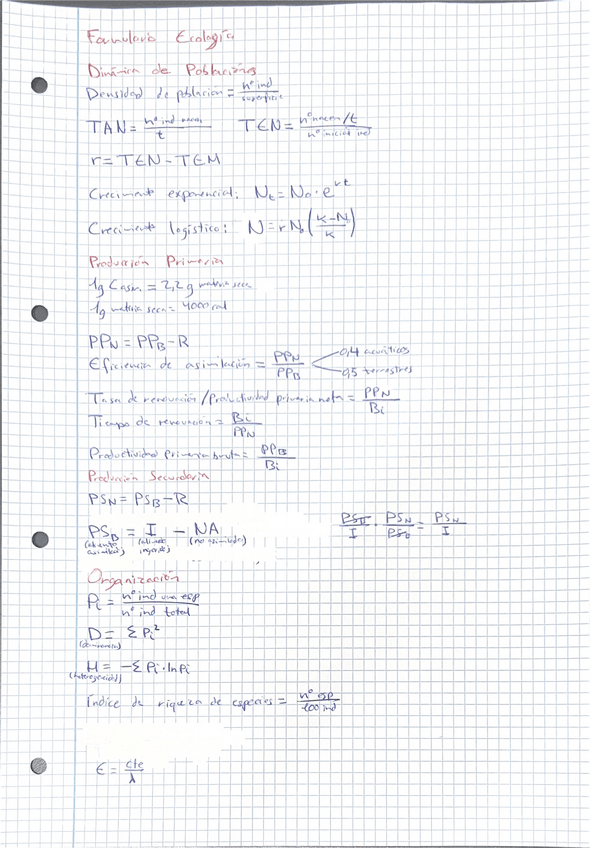 Formulario Ecología
Dinámica de Poblaciones
Densidad de poblacion = nº ind / superficie
TAN = nº ind nacen / t    TEN = nº nacen/t / nº inicial ind
r = TEN - TEM
Crecimiento exponencial: Nt = N₀ · e^rt
Crecimiento logístico: N = r N₀ (K-N₀ / K)
Producción Primaria
1g Casm. = 2,2 g materia seca
1g materia seca = 4000 cal
PPN = PPB - R
Eficiencia de asimilación = PPN / PPB < 0,4 acuáticos
0,5 terrestres
Tasa de renovación / Productividad primaria neta = PPN / Bi
Tiempo de renovación = Bi / PPN
Productividad Primaria bruta = PPB / Bi
Producción Secundaria
PSN = PSB - R
PSB = I - NA    PSB / I · PSN / PSB = PSN / I
(alimento asimilado) (alimento ingerido) (no asimilado)
Organización
Pi = nº ind una esp / nº ind total
D = Σ Pi²
(dominancia)
H = -Σ Pi · ln Pi
(heterogeneidad)
Índice de riqueza de especies = nº esp / 100 ind
E = cte / λ